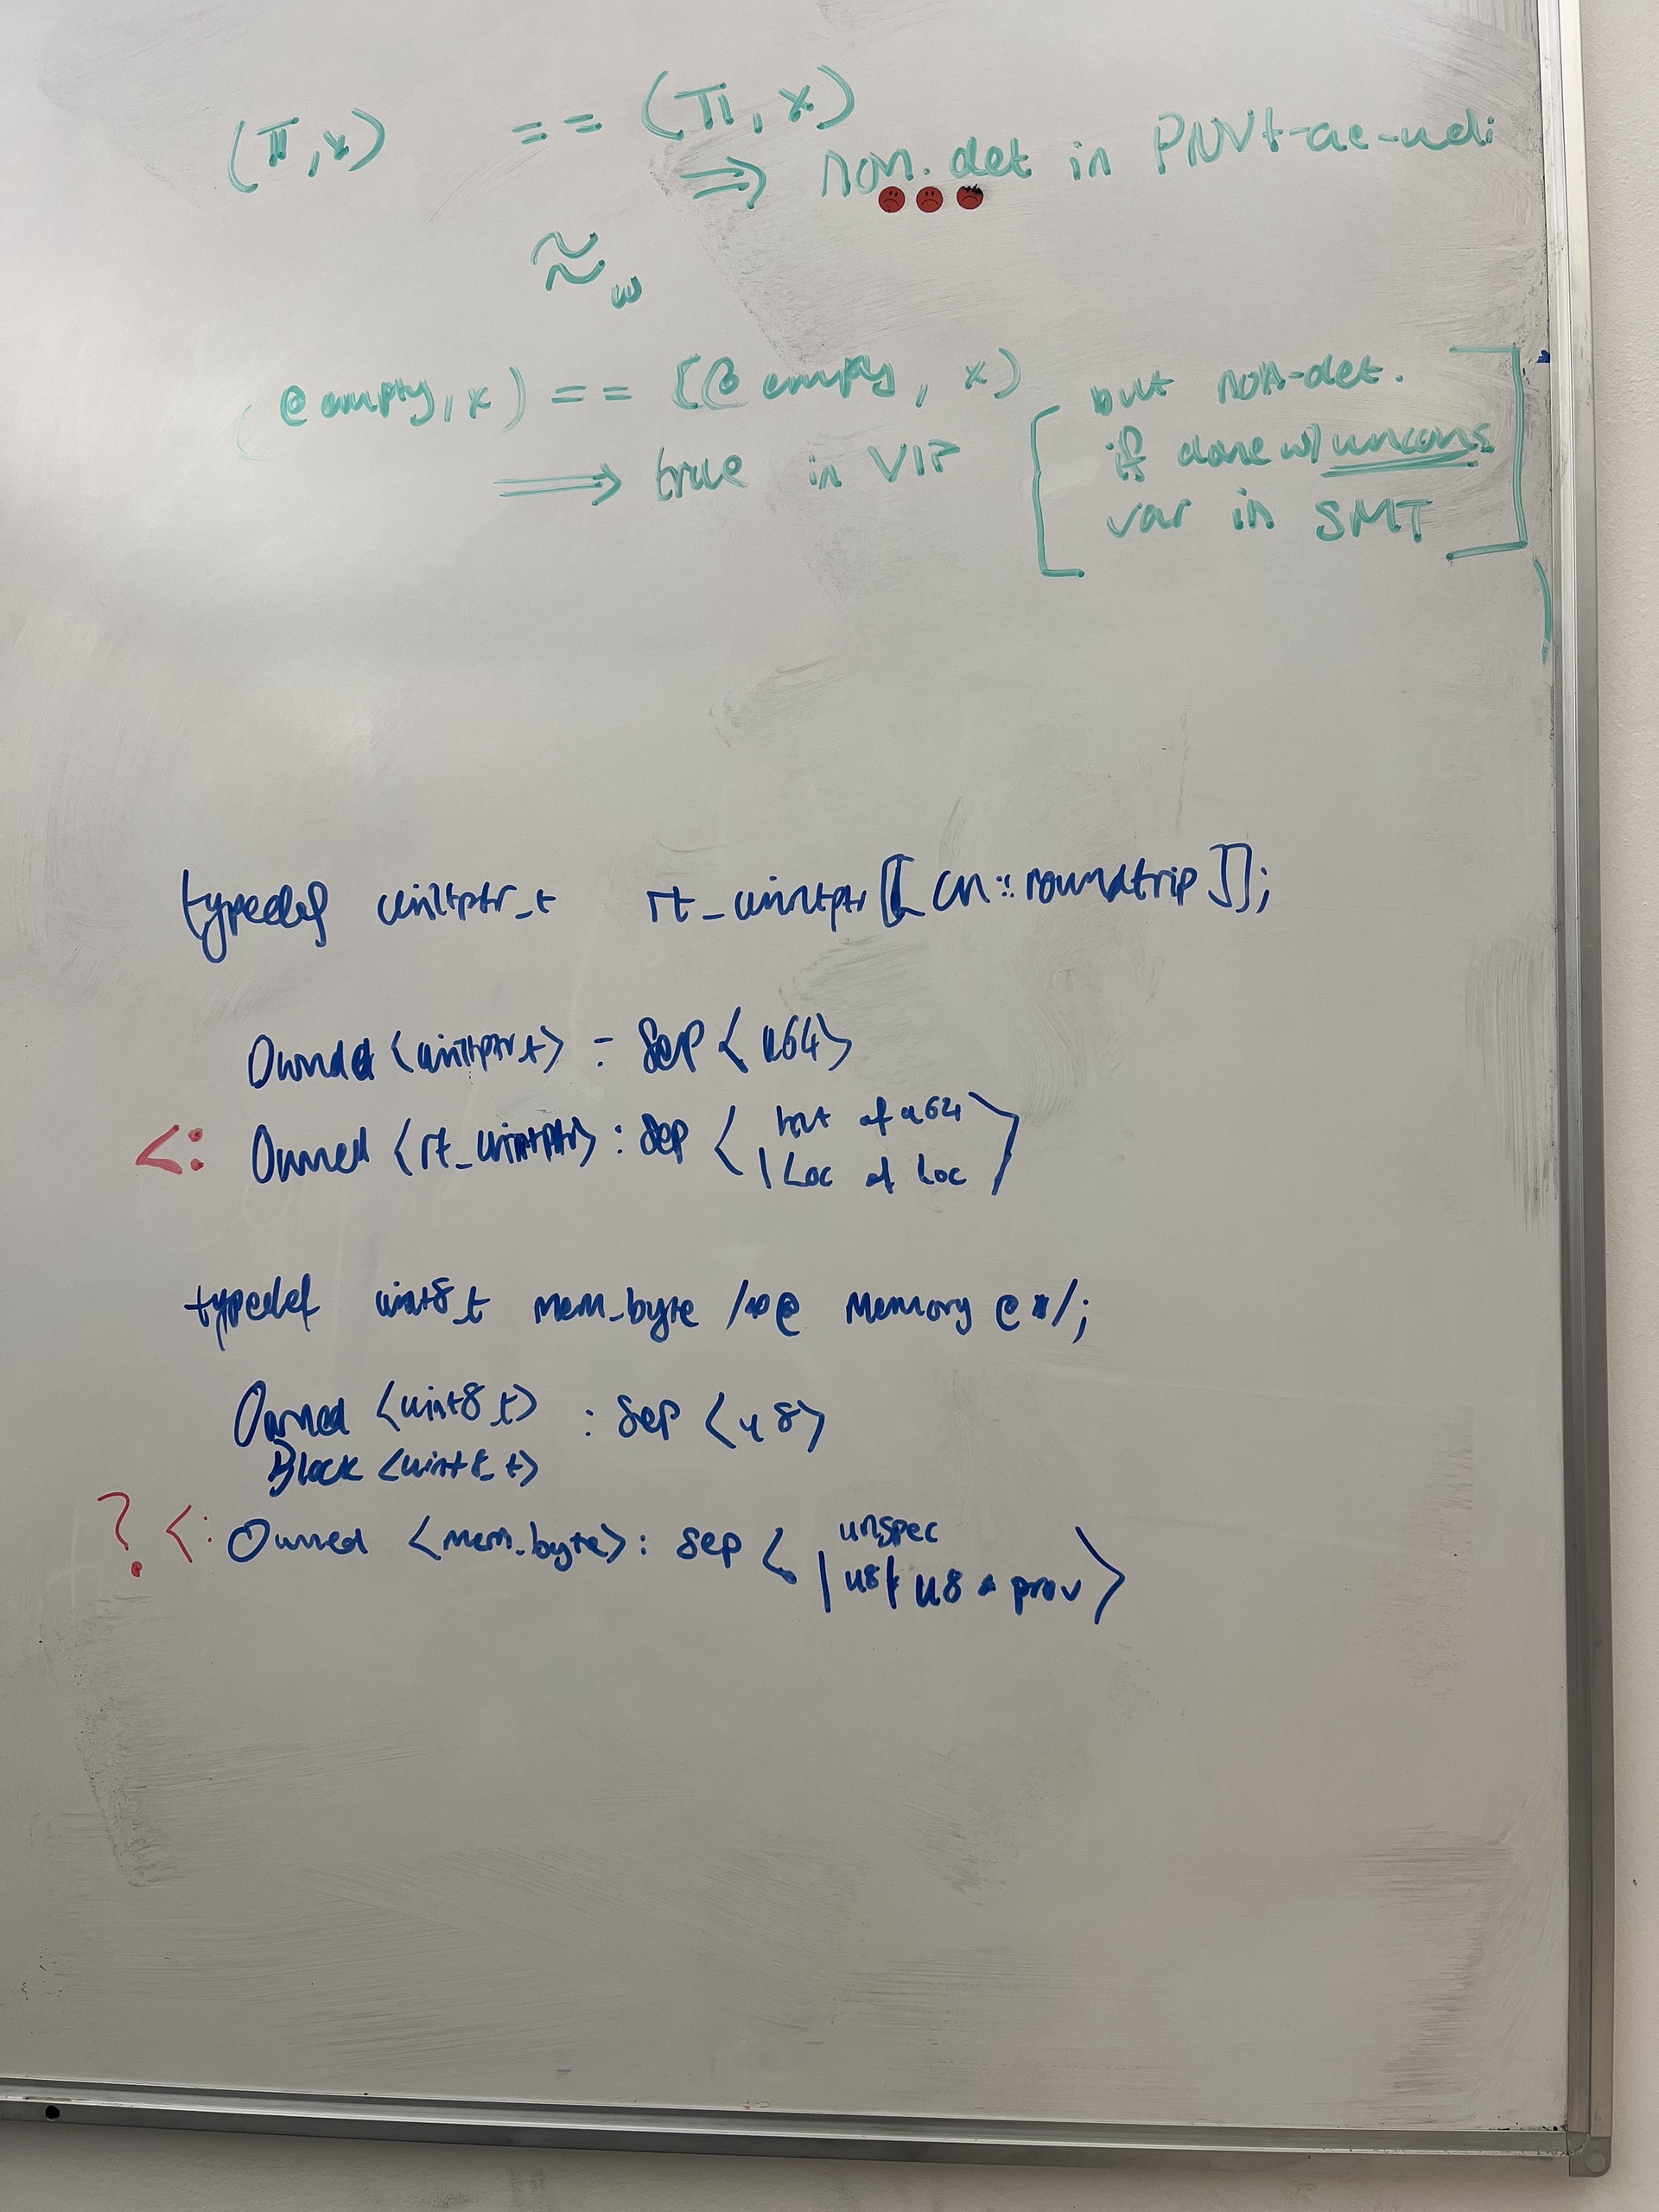 (π, x) == (π, x)
⇒ non.det in PNVI-ae-udi
≈w
(@empty, x) == (@empty, x)
⟹ true in VIP
[but non-det.
if done w/ uncons
var in SMT]
typedef uintptr_t rt_uintptr [[cn::roundtrip]];
Owned <uintptr_t> : Sep < u64>
<: Owned <rt_uintptr> : Sep < Int of u64
| Loc of Loc >
typedef uint8_t mem_byte /*@ Memory @*/;
Owned <uint8_t> : Sep <u8>
Block <uint8_t>
? <: Owned <mem_byte> : Sep < unspec
| u8 | u8 * prov >